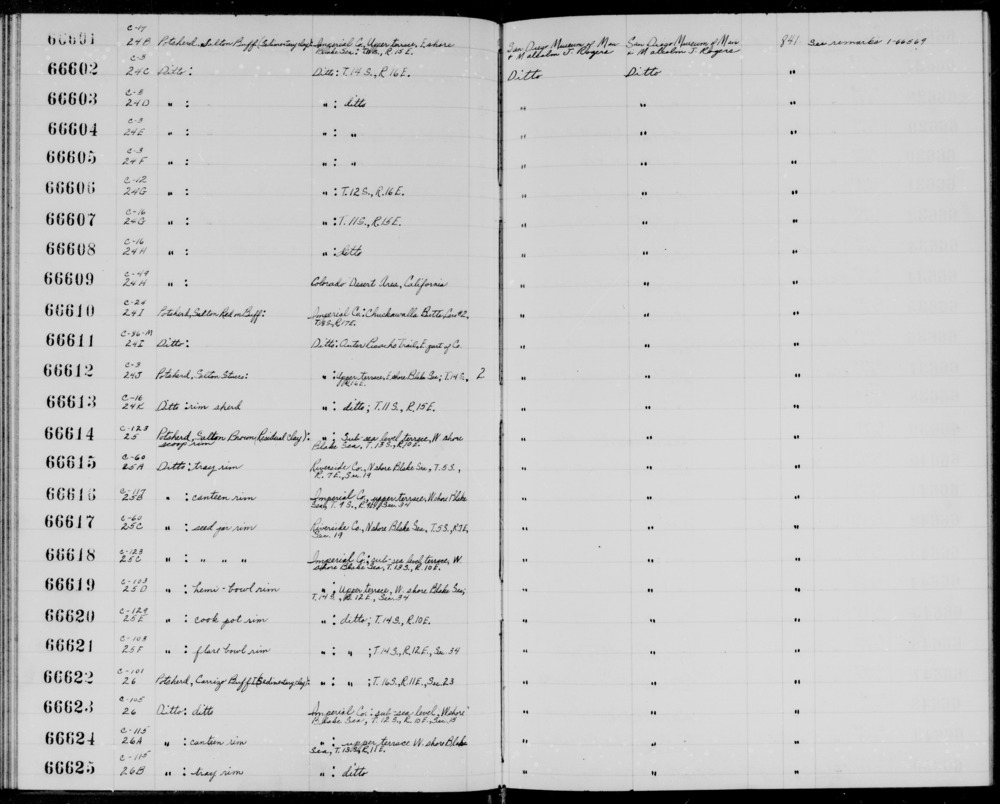 66601 C-4 24B Potsherd, Salton Buff (Sedimentary clay): Imperial Co. Upper terrace, E shore Blake Sea: T14S., R.15E. San Diego Museum of Man & Malcolm J. Rogers San Diego Museum of Man & Malcolm J. Rogers 841. See remarks 1-66569
66602 C-3 24C Ditto: Ditto: T.14 S., R 16 E. Ditto Ditto
66603 C-3 24D " : " : ditto " " "
66604 C-3 24E " : " : " " " "
66605 C-3 24F " : " : " " " "
66606 C-12 24G " : " : T.12 S., R.16E. " " "
66607 C-16 24G " : " : T.11S., R.15E. " " "
66608 C-16 24H " : " : ditto " " "
66609 C-49 24H " : Colorado Desert Area, California " " "
66610 C-24 24I Potsherd, Salton Red on Buff: Imperial Co: Chuckawalla Butte, #2, T.8S., R.17E. " " "
66611 C-86-M 24I Ditto: Ditto: Outer Trail, E part of Co. " " "
66612 C-3 24J Potsherd, Salton Stucco: " : Upper terrace, E shore Blake Sea; T.14 S., R.16E. 2 " " "
66613 C-16 24K Ditto : rim sherd " : ditto; T.11 S., R.15E. " " "
66614 C-123 25 Potsherd, Salton Brown (Residual clay): scoop rim " : Sub-sea level terrace, W shore Blake Sea, T.13 S., R.10E. " " "
66615 C-60 25A Ditto: tray rim Riverside Co., N shore Blake Sea, T.5S., R.7E., Sec. 19 " " "
66616 C-117 25B " : canteen rim Imperial Co., upper terrace, W shore Blake Sea, T.9S., Sec. 34 " " "
66617 C-60 25C " : seed jar rim Riverside Co., N shore Blake Sea, T.5S., R.7E, Sec. 19 " " "
66618 C-123 25C " : " " " Imperial Co: sub-sea level terrace, W. shore Blake Sea, T.13S., R.10E. " " "
66619 C-103 25D " : hemi-bowl rim " : Upper terrace, W. shore Blake Sea; T.14 S., R. 12E., Sec. 34 " " "
66620 C-129 25E " : cook pot rim " : ditto; T.14S., R.10E. " " "
66621 C-103 25F " : flare bowl rim " : " ; T.14S., R.12E., Sec. 34 " " "
66622 C-101 26 Potsherd, Carrizo Buff I (Sedimentary clay): " : " ; T.16S., R.11E., Sec. 23 " " "
66623 C-105 26 Ditto: ditto Imperial Co: sub-sea level, W shore Blake Sea, T.12S., R.10E., Sec. 15 " " "
66624 C-115 26A " : canteen rim " : upper terrace W. shore Blake Sea, T.13S., R.11E. " " "
66625 C-115 26B " : tray rim " : ditto " " "